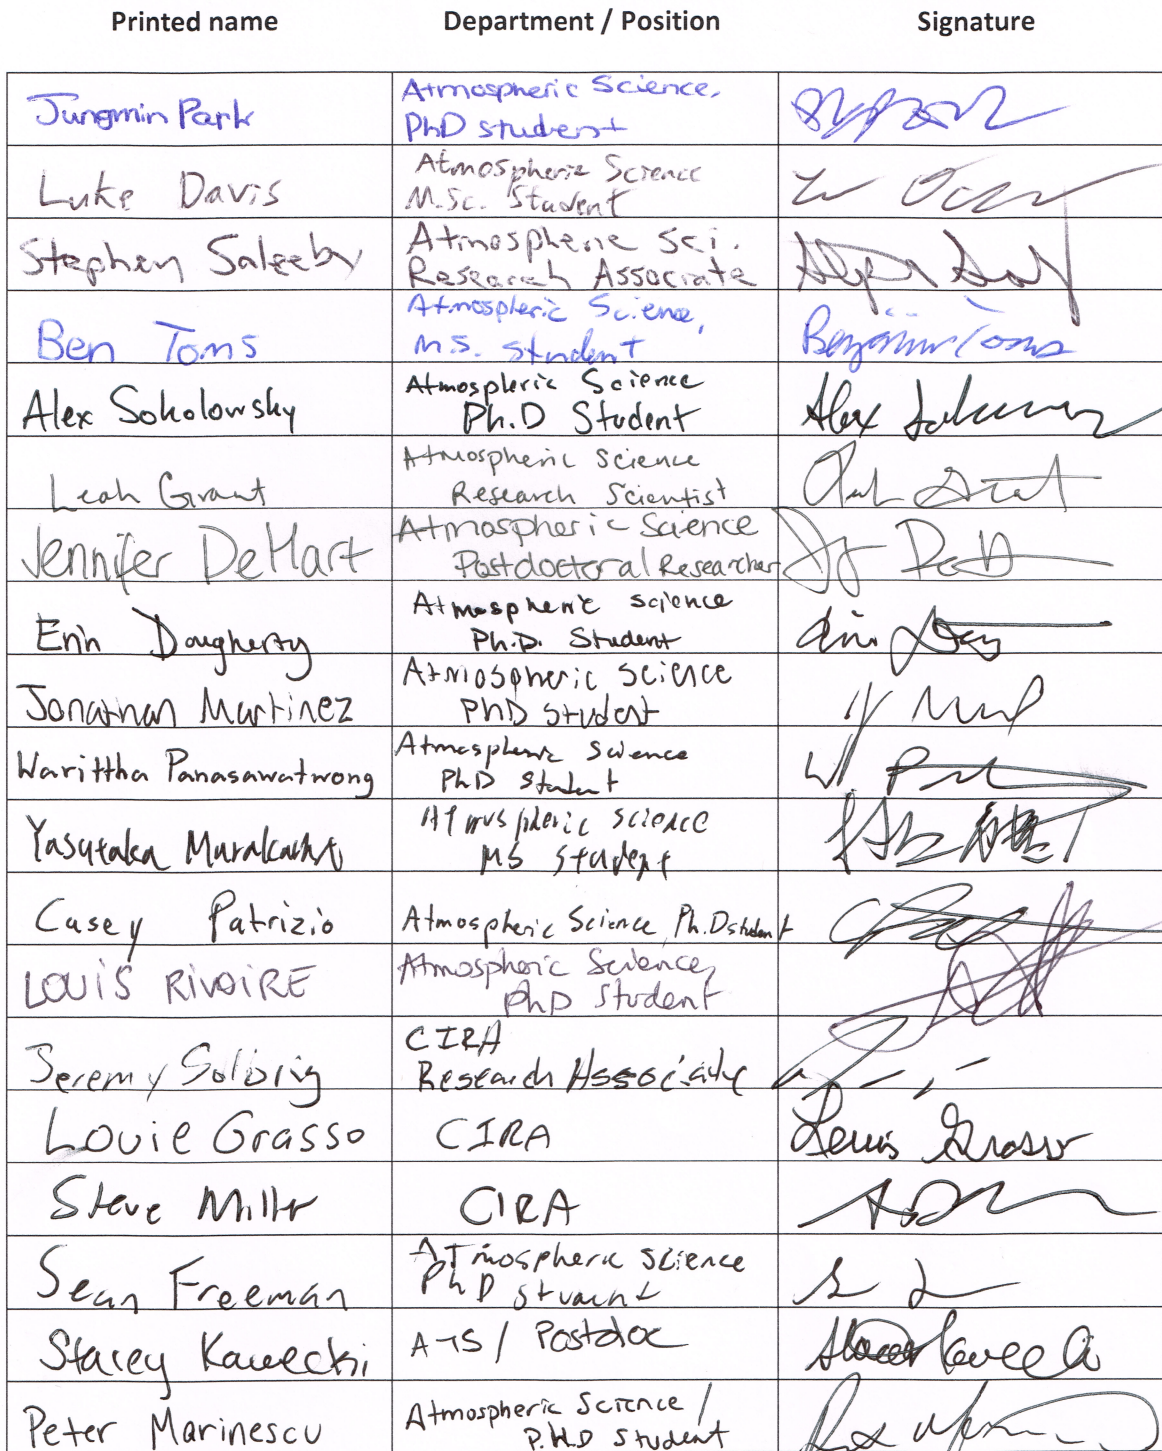 Printed name Department / Position Signature
Jungmin Park Atmospheric Science,
PhD student
Luke Davis Atmospheric Science
M.Sc. Student
Stephen Saleeby Atmospheric Sci.
Research Associate
Ben Toms Atmospheric Science,
M.S. Student Benjamin Toms
Alex Sokolowsky Atmospheric Science
Ph.D Student Alex
Leah Grant Atmospheric Science
Research Scientist
Jennifer DeHart Atmospheric Science
Postdoctoral Researcher
Erin Dougherty Atmospheric science
Ph.D. Student
Jonathan Martinez Atmospheric Science
PhD Student
Warittha Panasawatwong Atmospheric Science
PhD Student
Yasutaka Murakami Atmospheric science
MS Student
Casey Patrizio Atmospheric Science, Ph.D student
LOUIS RIVOIRE Atmospheric Science,
PhD Student
Jeremy Solbrig CIRA
Research Associate
Louie Grasso CIRA Lewis Grasso
Steve Miller CIRA
Sean Freeman Atmospheric Science
PhD Student
Stacey Kawecki ATS / Postdoc
Peter Marinescu Atmospheric Science /
P.H.D Student